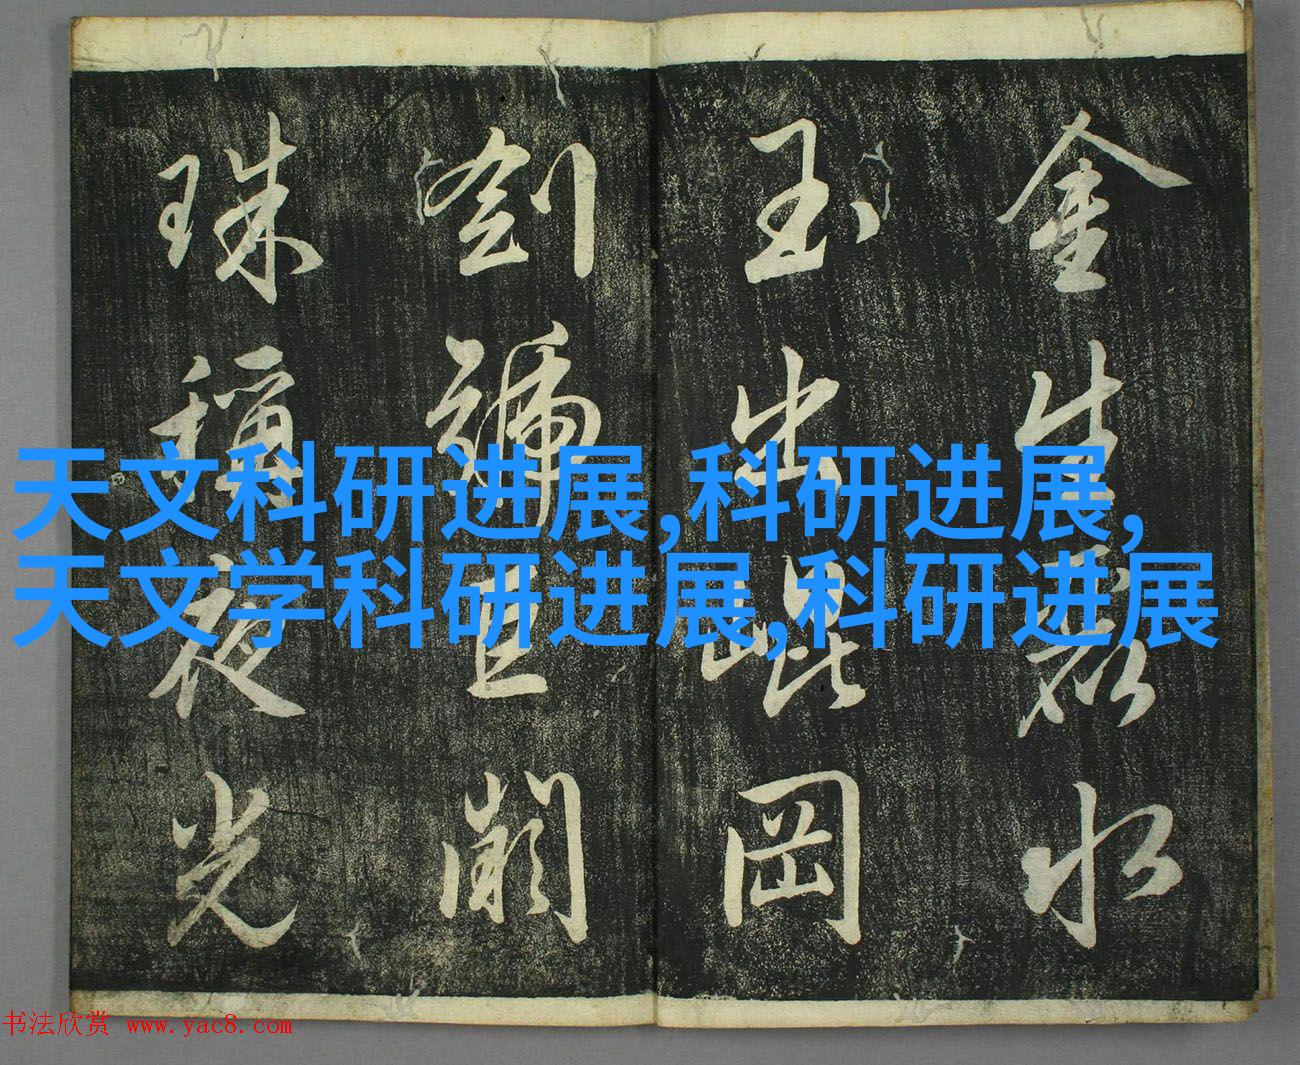 金生麗水
玉出崑岡
劍號巨闕
珠稱夜光
天文科研进展,科研进展,
天文学科研进展,科研进展
书法欣赏 www.yac8.com